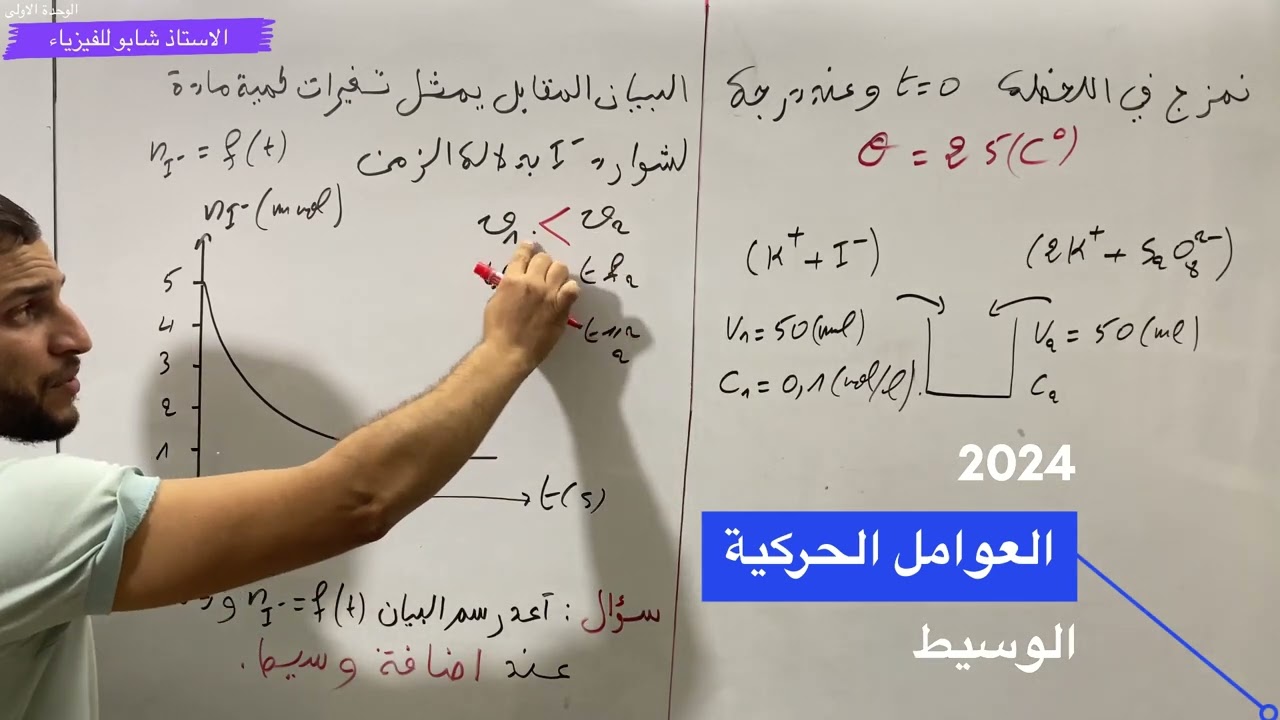 الوحدة الاولى
الاستاذ شابو للفيزياء
نمزج في اللحظة t=0 وعند درجة
θ = 25(C°)
(K⁺ + I⁻)
(2K⁺ + S₂O₈²⁻)
V₁ = 50(ml)
V₂ = 50(ml)
C₁ = 0,1(mol/l).
C₂
البيان المقابل يمثل تغيرات كمية مادة
لشوارد I⁻ بدلالة الزمن
n_I⁻ = f(t)
n_I⁻ (mmol)
v₁ < v₂
t f₂
5
4
3
2
1
t(s)
سؤال : أعد رسم البيان n_I⁻ = f(t)
عند اضافة وسيط .
2024
العوامل الحركية
الوسيط